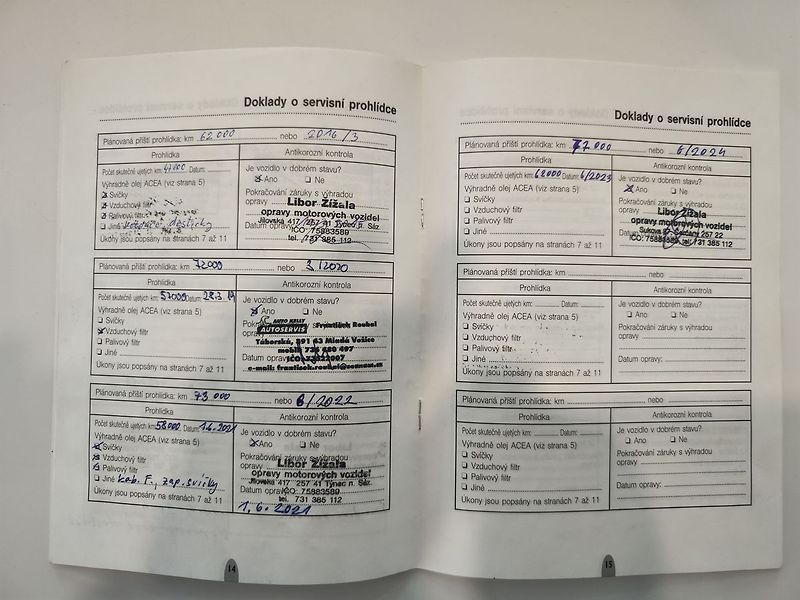 Doklady o servisní prohlídce
Plánovaná příští prohlídka: km 62 000 nebo 2016/3
Prohlídka
Antikorozní kontrola
Počet skutečně ujetých km: 47000 Datum:
Výhradně olej ACEA (viz strana 5)
Svíčky
Vzduchový filtr
Palivový filtr
Jiné
Úkony jsou popsány na stranách 7 až 11
Je vozidlo v dobrém stavu?
Ano Ne
Pokračování záruky s výhradou
opravy
Libor Žížala
opravy motorových vozidel
Jílovská 417 257 41 Týnec n. Sáz.
Datum opravy: IČO: 75883589
tel. 731 385 112
Plánovaná příští prohlídka: km 72000 nebo 3/2020
Prohlídka
Antikorozní kontrola
Počet skutečně ujetých km: 57000 Datum: 28.3.
Výhradně olej ACEA (viz strana 5)
Svíčky
Vzduchový filtr
Palivový filtr
Jiné
Úkony jsou popsány na stranách 7 až 11
Je vozidlo v dobrém stavu?
Ano Ne
AUTO KELLY
AUTOSERVIS František Roubal
Táborská, 391 43 Mladá Vožice
Datum opravy
Plánovaná příští prohlídka: km 73 000 nebo 6/2022
Prohlídka
Antikorozní kontrola
Počet skutečně ujetých km: 58000 Datum: 1.6.2021
Výhradně olej ACEA (viz strana 5)
Svíčky
Vzduchový filtr
Palivový filtr
Jiné kab. F., zap. svíčky
Úkony jsou popsány na stranách 7 až 11
Je vozidlo v dobrém stavu?
Ano Ne
Pokračování záruky s výhradou
opravy
Libor Žížala
opravy motorových vozidel
Jílovská 417 257 41 Týnec n. Sáz.
Datum opravy IČO: 75883589
tel. 731 385 112
1. 6. 2021
14
Doklady o servisní prohlídce
Plánovaná příští prohlídka: km 77 000 nebo 6/2024
Prohlídka
Antikorozní kontrola
Počet skutečně ujetých km: 62000 Datum: 6/2023
Výhradně olej ACEA (viz strana 5)
Svíčky
Vzduchový filtr
Palivový filtr
Jiné
Úkony jsou popsány na stranách 7 až 11
Je vozidlo v dobrém stavu?
Ano Ne
Pokračování záruky s výhradou
opravy
Libor Žížala
opravy motorových vozidel
257 22
IČO: 75883589 tel: 731 385 112
Plánovaná příští prohlídka: km nebo
Prohlídka
Antikorozní kontrola
Počet skutečně ujetých km: Datum:
Výhradně olej ACEA (viz strana 5)
Svíčky
Vzduchový filtr
Palivový filtr
Jiné
Úkony jsou popsány na stranách 7 až 11
Je vozidlo v dobrém stavu?
Ano Ne
Pokračování záruky s výhradou
opravy
Datum opravy:
Plánovaná příští prohlídka: km nebo
Prohlídka
Antikorozní kontrola
Počet skutečně ujetých km: Datum:
Výhradně olej ACEA (viz strana 5)
Svíčky
Vzduchový filtr
Palivový filtr
Jiné
Úkony jsou popsány na stranách 7 až 11
Je vozidlo v dobrém stavu?
Ano Ne
Pokračování záruky s výhradou
opravy
Datum opravy:
15